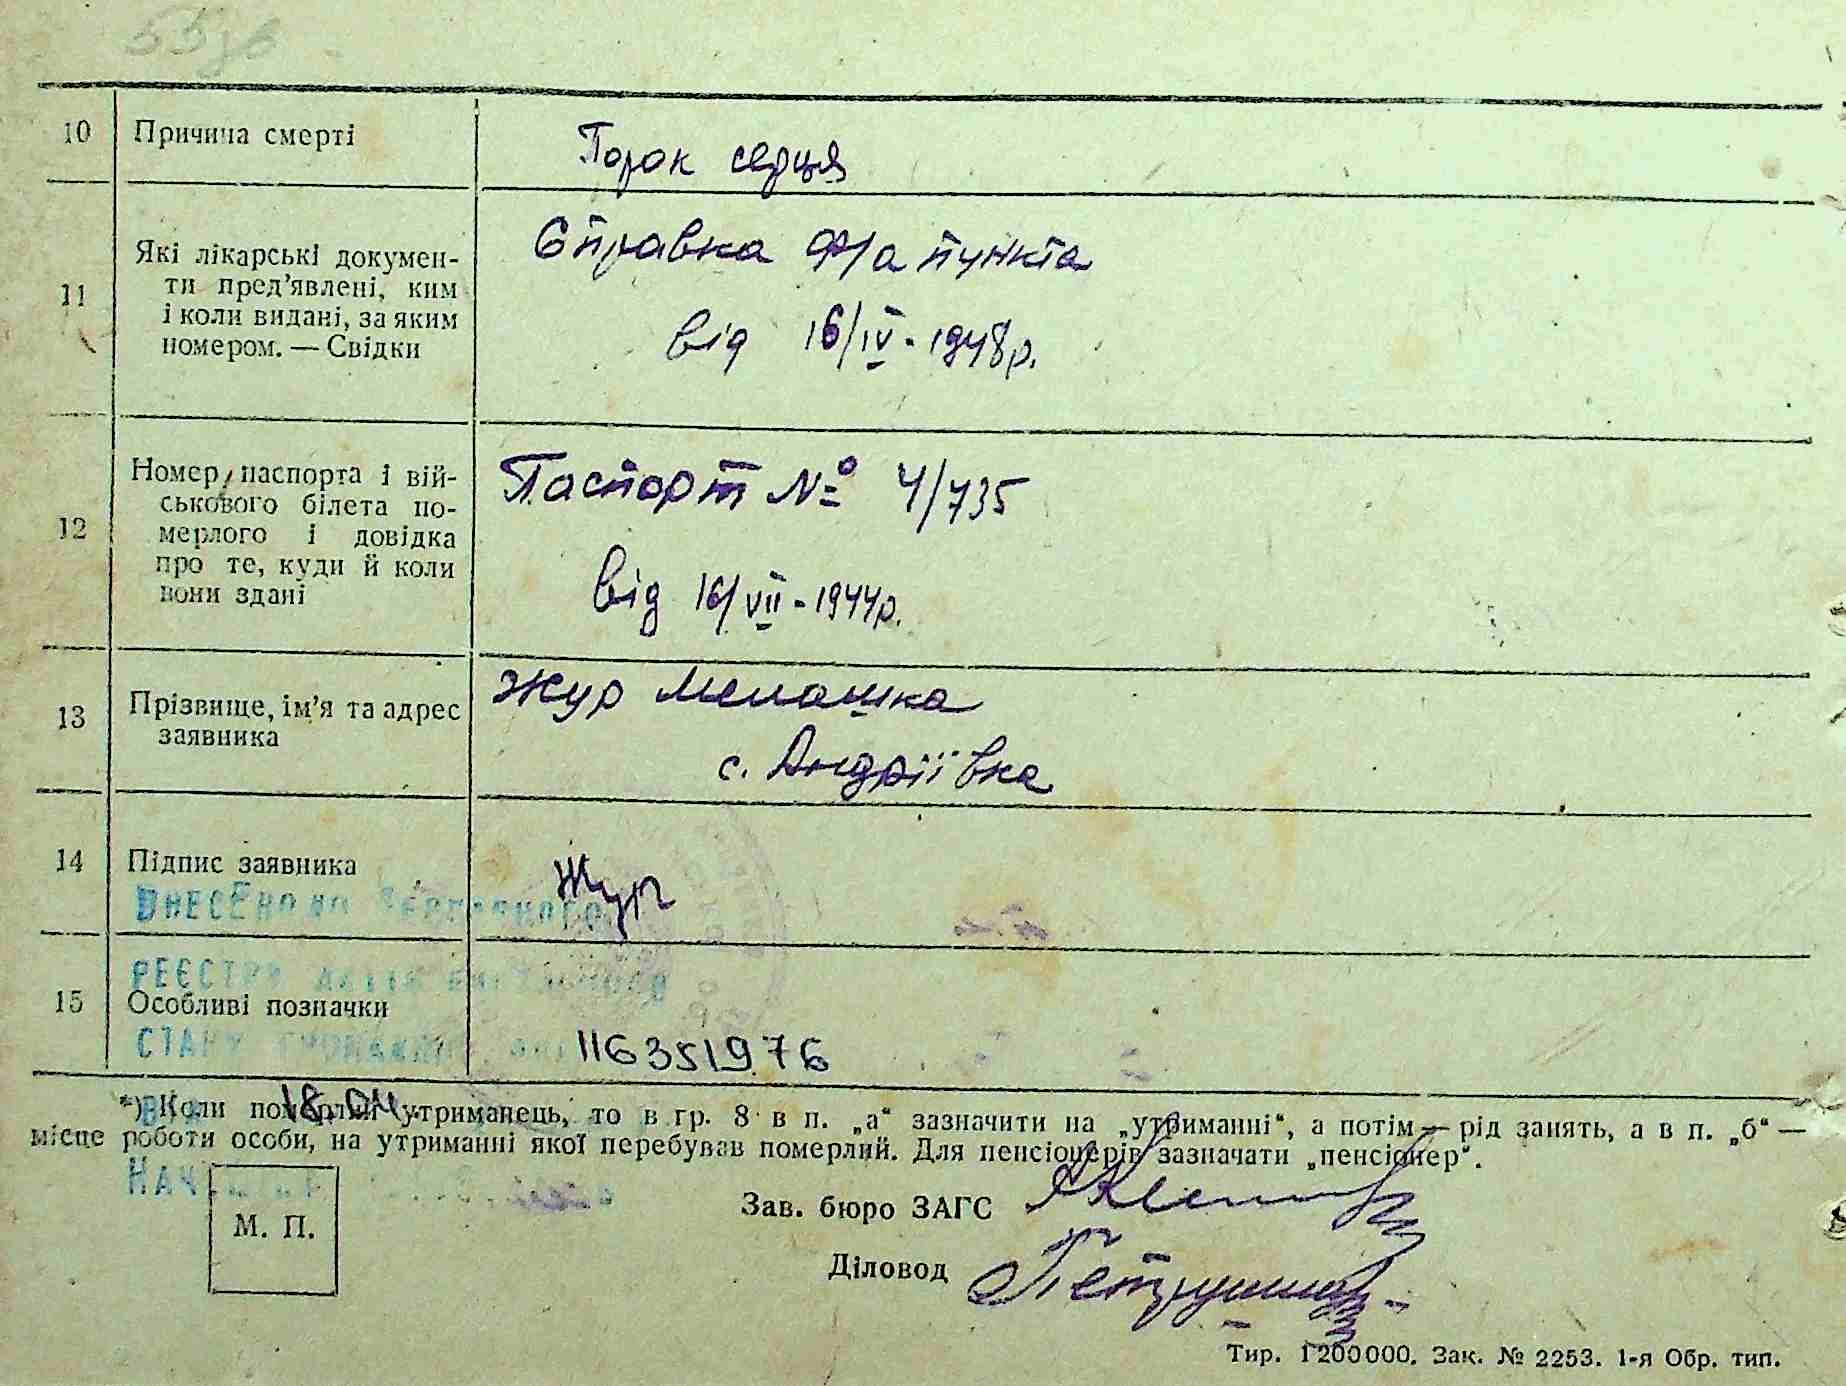 10 Причина смерті Порок серця
11 Які лікарські докумен-
ти пред'явлені, ким
і коли видані, за яким
номером. — Свідки
Справка ф/а пункта
від 16/IV - 1948р.
12 Номер паспорта і вій-
ськового білета по-
мерлого і довідка
про те, куди й коли
вони здані
Паспорт № 4/735
від 16/VII - 1944р.
13 Прізвище, ім'я та адрес
заявника
Жур Мелашка
с. Андріївка
14 Підпис заявника Жур
ВНЕСЕНО ДО ДЕРЖАВНОГО
РЕЄСТРУ АКТІВ ЦИВІЛЬНОГО
15 Особливі позначки
СТАНУ ГРОМАДЯН 116351976
18.04
*) Коли померлий утриманець, то в гр. 8 в п. „а“ зазначити на „утриманні“, а потім — рід занять, а в п. „б“ —
місце роботи особи, на утриманні якої перебував померлий. Для пенсіонерів зазначати „пенсіонер“.
М. П.
Зав. бюро ЗАГС
Діловод
Тир. 1200000. Зак. № 2253. 1-я Обр. тип.